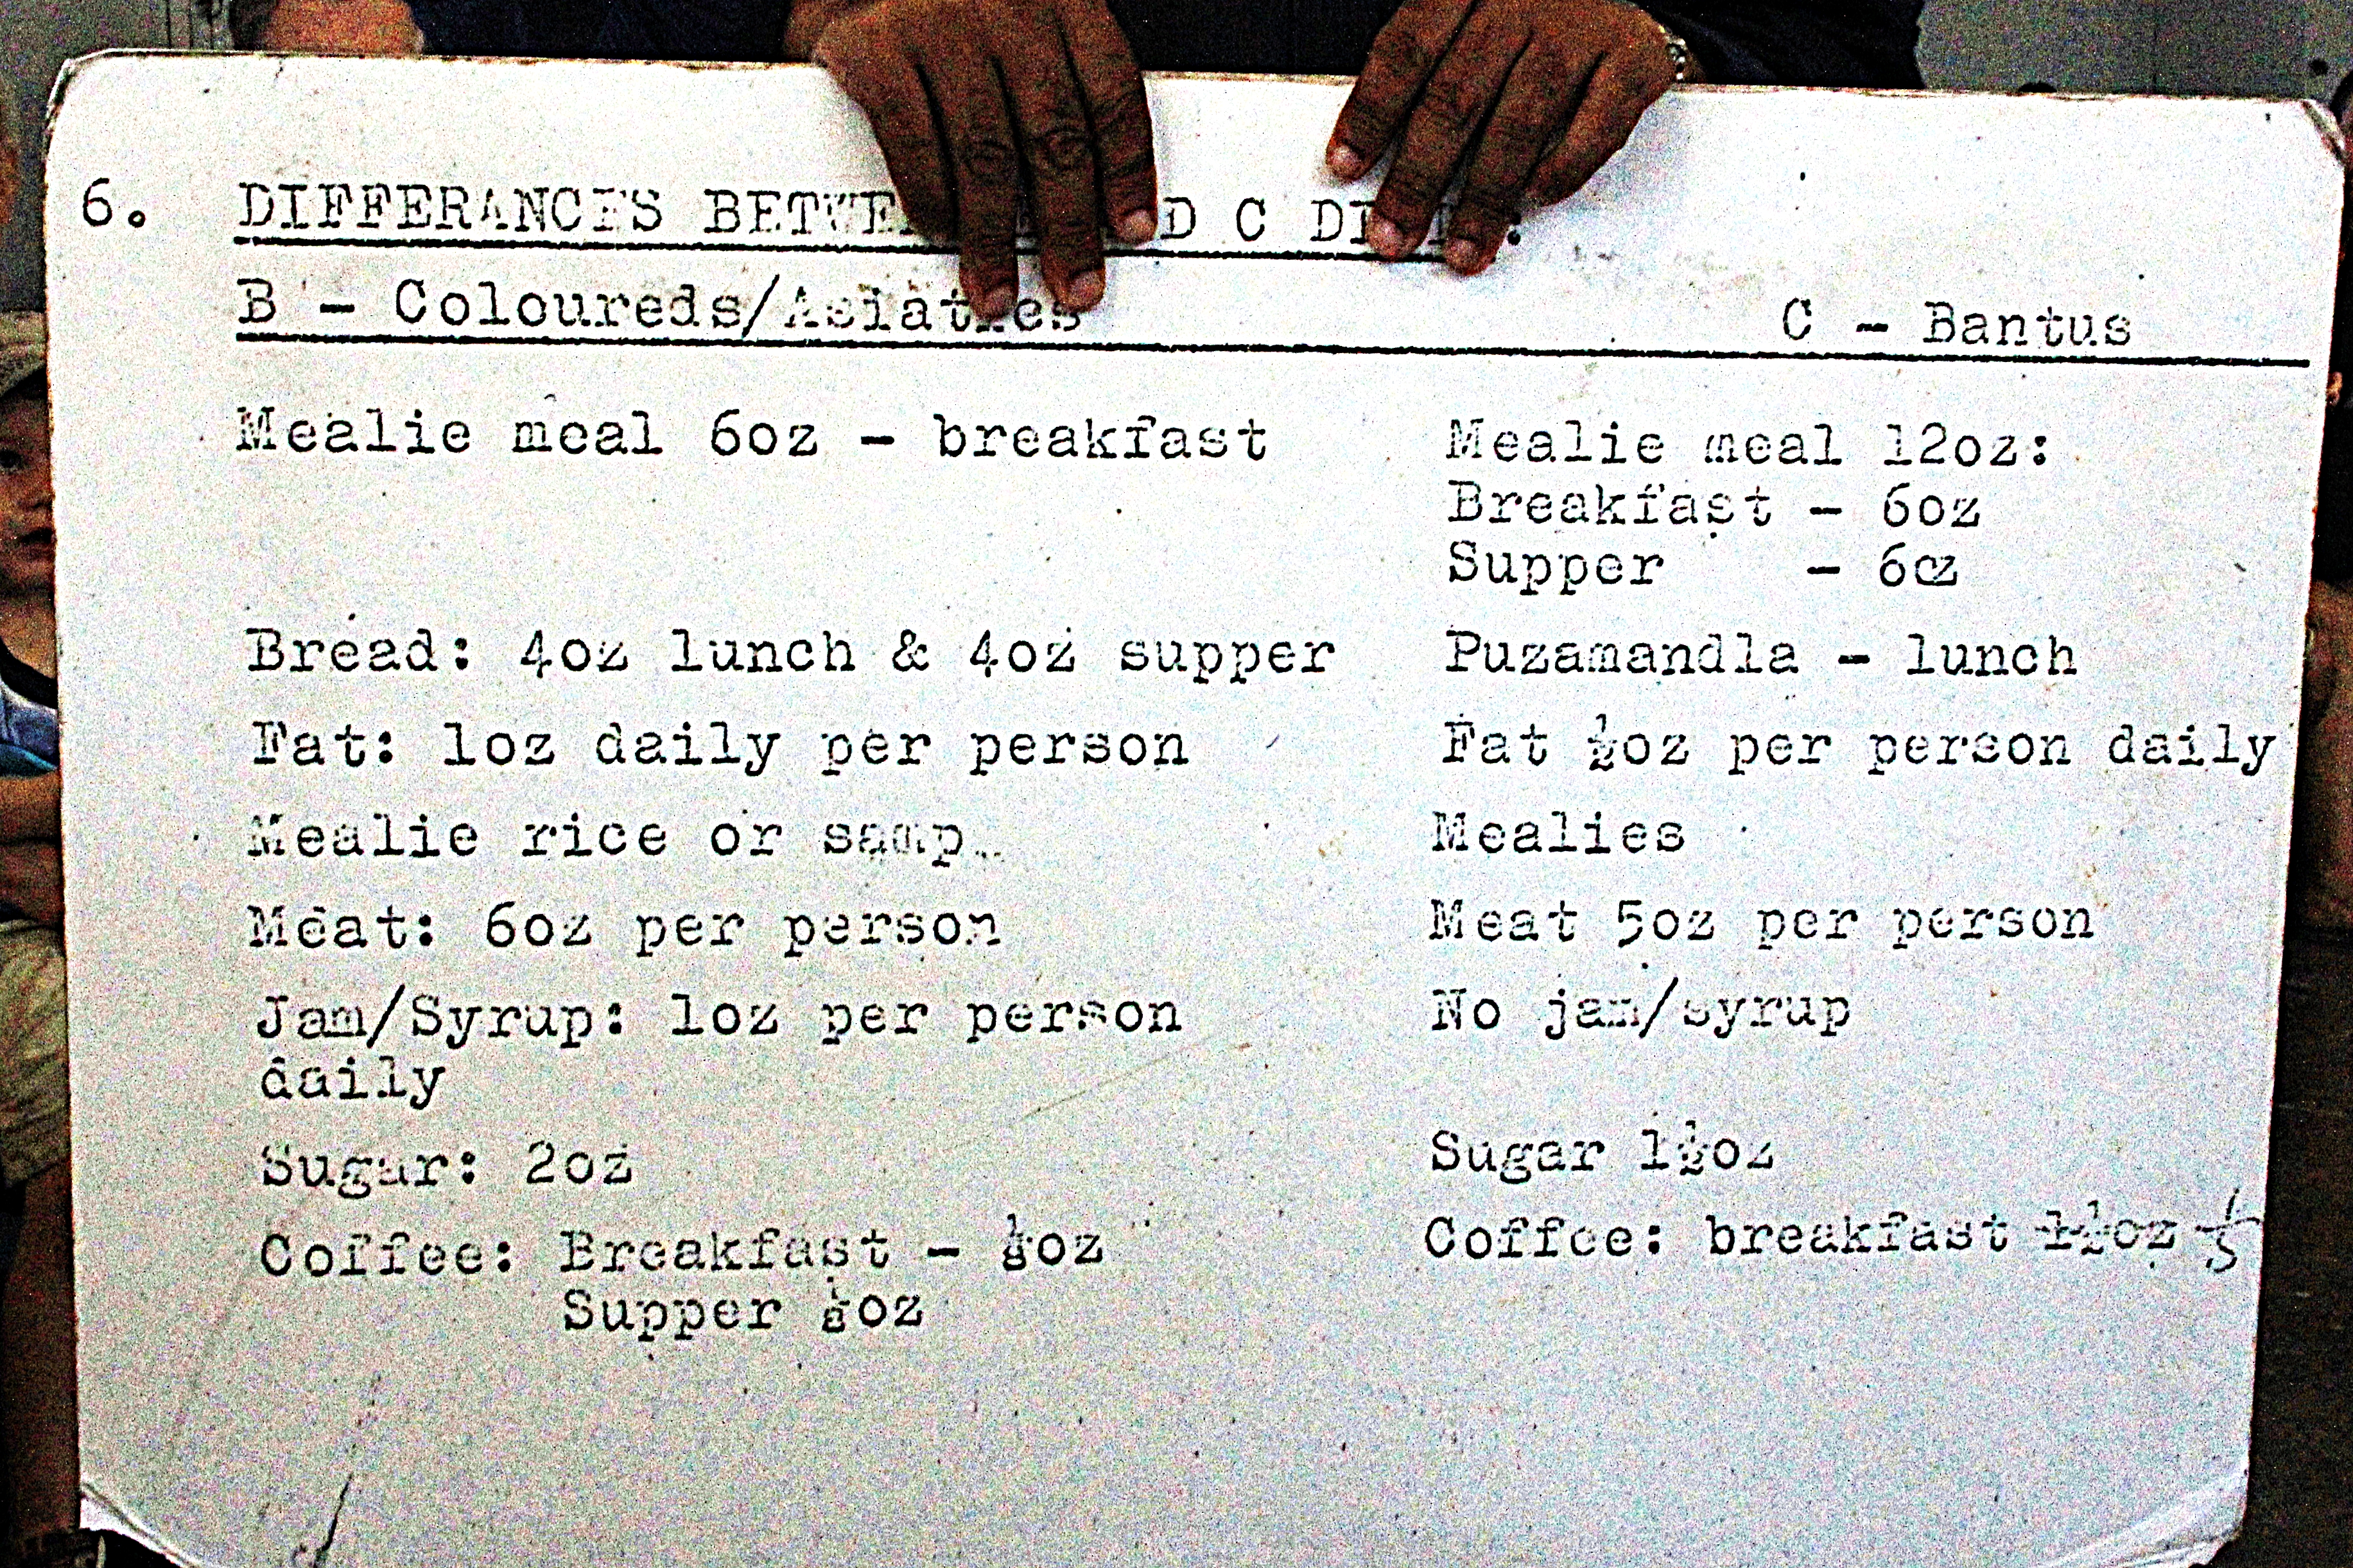 6. DIFFERANCES BETWE D C :
B - Coloureds/Asiatics C - Bantus
Mealie meal 6oz - breakfast Mealie meal 12oz:
Breakfast - 6oz
Supper - 6oz
Bread: 4oz lunch & 4oz supper Puzamandla - lunch
Fat: 1oz daily per person Fat ½oz per person daily
Mealie rice or samp. Mealies
Meat: 6oz per person Meat 5oz per person
Jam/Syrup: 1oz per person No jam/syrup
daily
Sugar: 2oz Sugar 1½oz
Coffee: Breakfast - oz Coffee: breakfast 1½oz
Supper oz